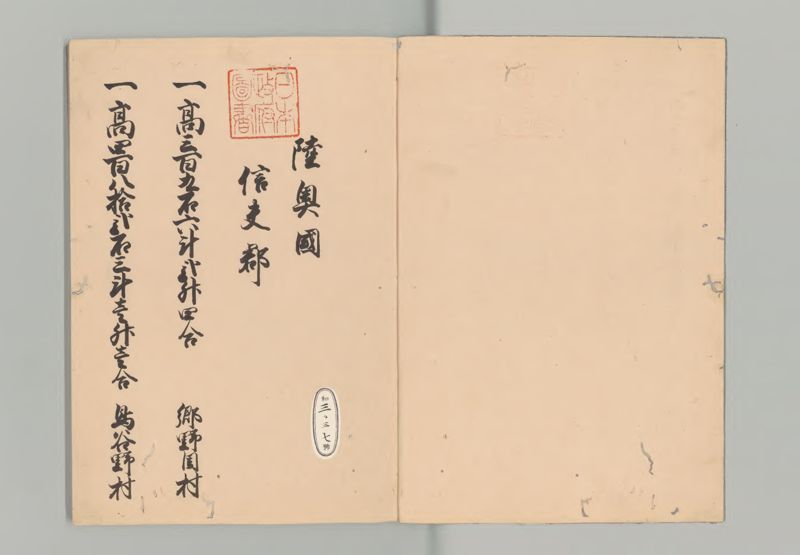 陸奥國
信夫郡
日本
政府
圖書
一高三百九石六斗弐升四合 郷野目村
一高四百八拾弐石三斗壱升壱合 鳥谷野村
和
三
七
號